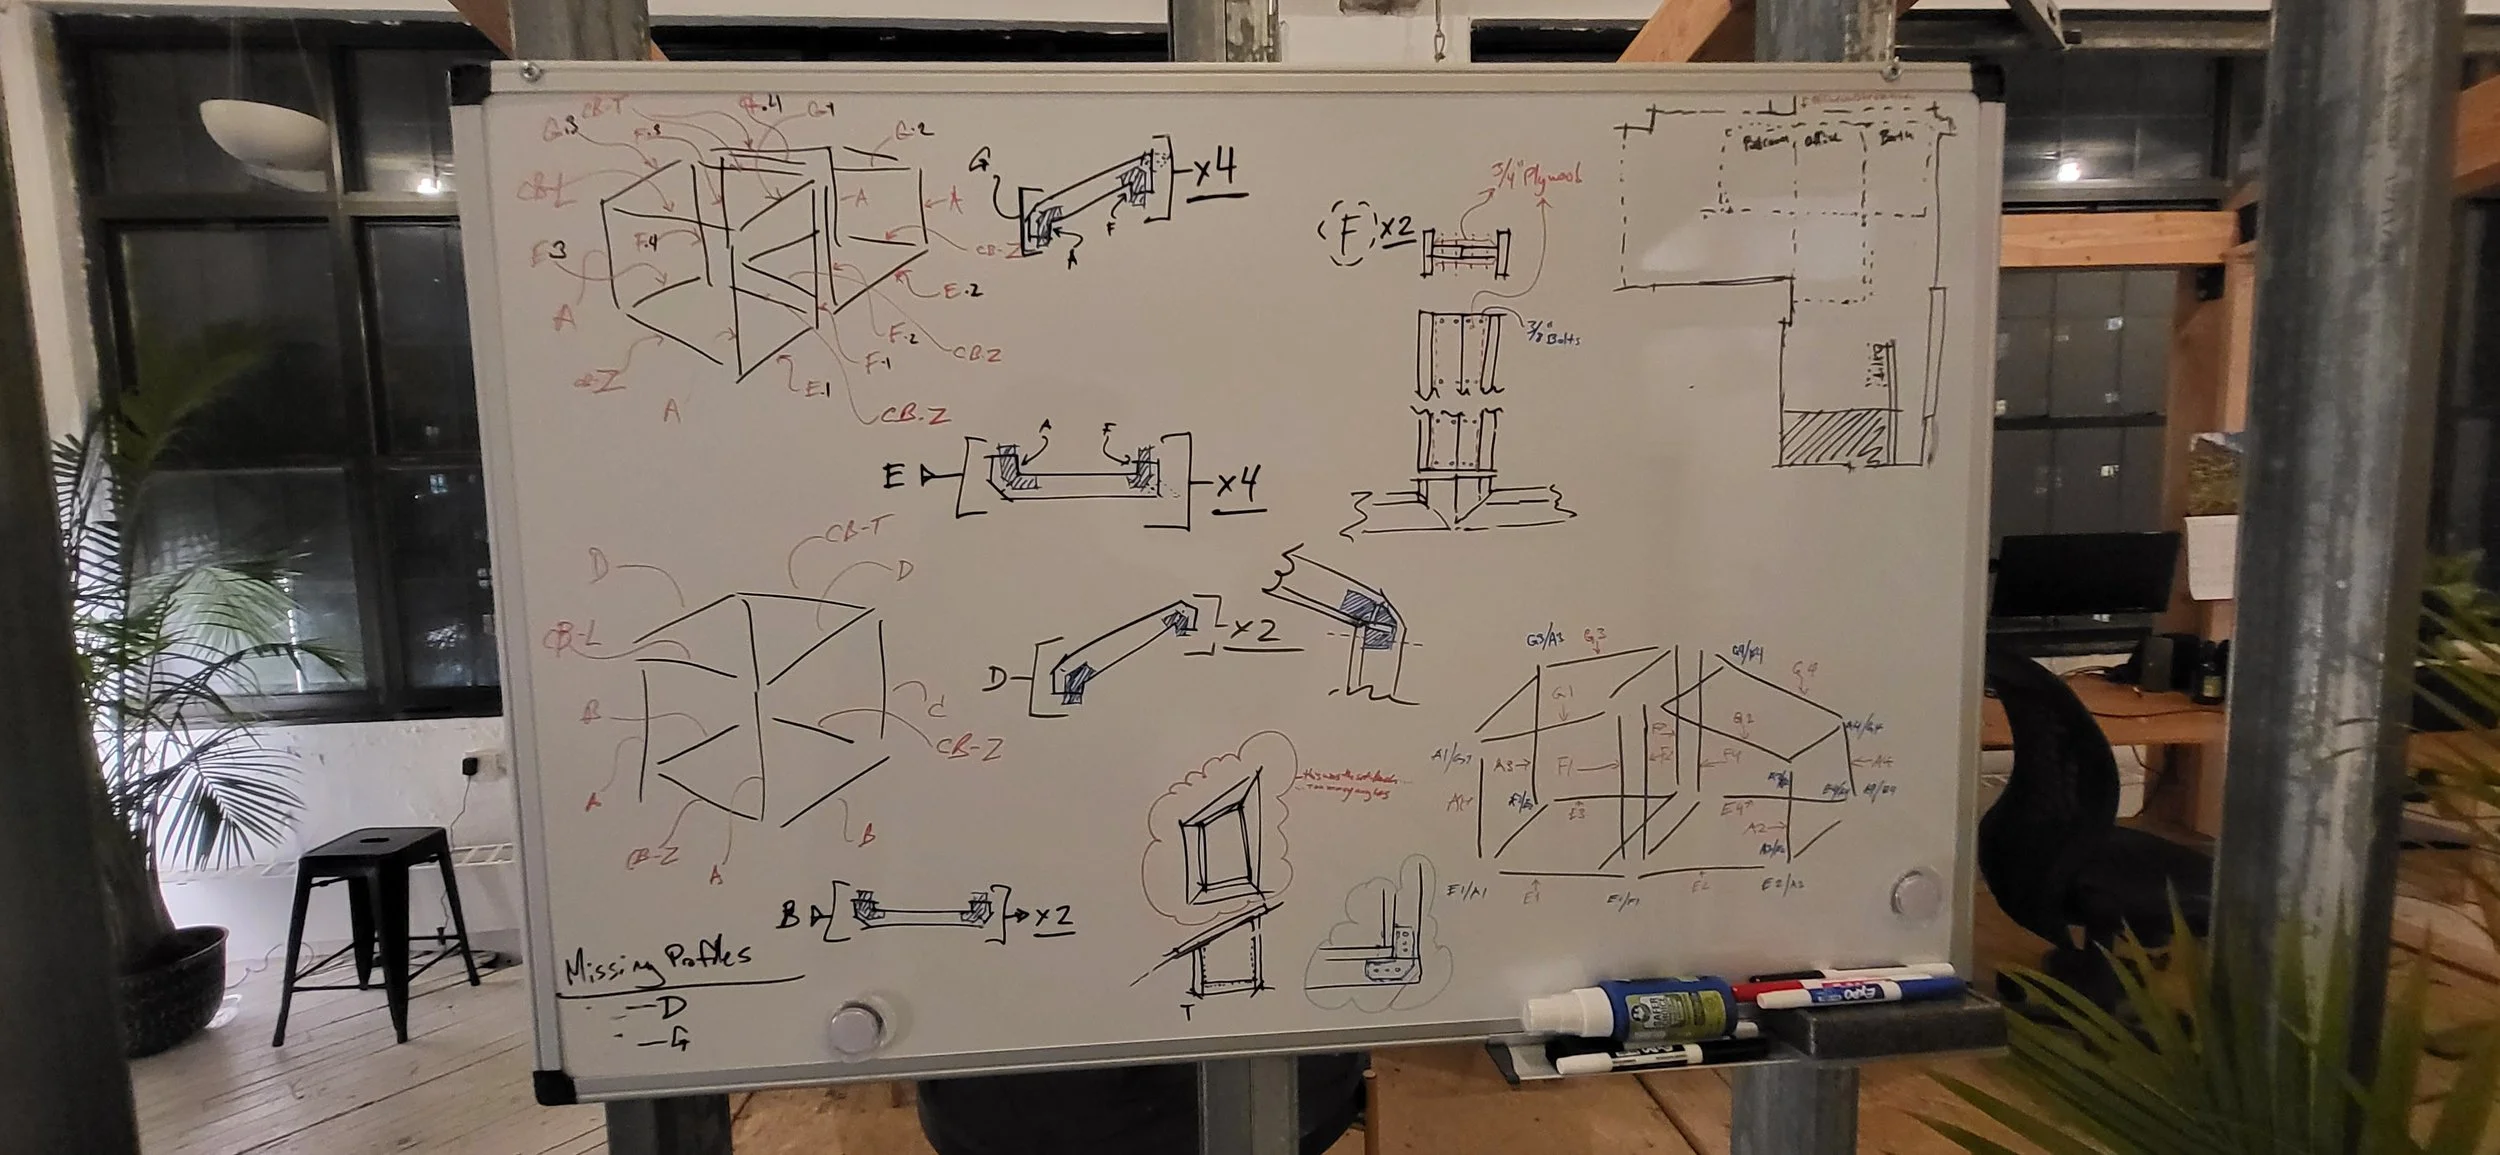 CB-T
G.4
G.1
G.3
F.3
G.2
CB-L
A
A
E.3
F.4
CB-Z
E.2
A
F.2
CB-Z
F.1
CB-Z
E.1
A
CB-Z
G
x4
F
A
E
A
F
x4
F
x2
3/4" Plywood
3/8" Bolts
Office
Bath
CB-T
D
D
CB-L
B
C
CB-Z
A
CB-Z
A
B
D
x2
B
x2
Missing Profiles
— D
— G
T
too many angles
G3/A3
G3
G4/F4
G4
G1
G2
A4/G4
A1/G1
A3
F1
F4
A4
E3
E4
A2
E1/A1
E1
E1/F1
E2
E2/A2
EXPO